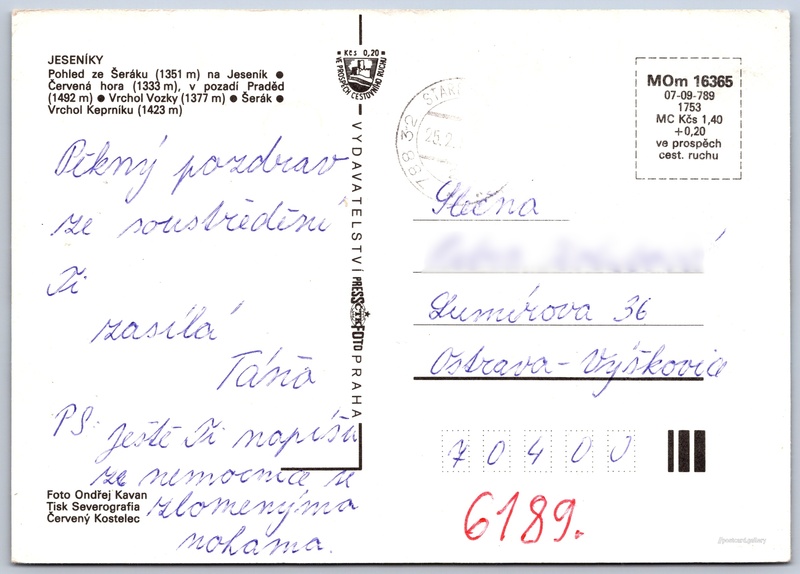 JESENÍKY
Pohled ze Šeráku (1351 m) na Jeseník ●
Červená hora (1333 m), v pozadí Praděd
(1492 m) ● Vrchol Vozky (1377 m) ● Šerák ●
Vrchol Keprníku (1423 m)
Pěkný pozdrav
ze soustředění
Ti
zasílá
Táňa
PS: Ještě Ti napíšu
ze nemocnice se
zlomenýma
nohama.
Foto Ondřej Kavan
Tisk Severografia
Červený Kostelec
Kčs 0,20
VE PROSPĚCH CESTOVNÍHO RUCHU
VYDAVATELSTVÍ PRESSFOTO PRAHA
ČTK
788 32
25.2.
MOm 16365
07-09-789
1753
MC Kčs 1,40
+0,20
ve prospěch
cest. ruchu
Slečna
Lumírova 36
Ostrava-Výškovice
70400
6189.
@postcard.gallery